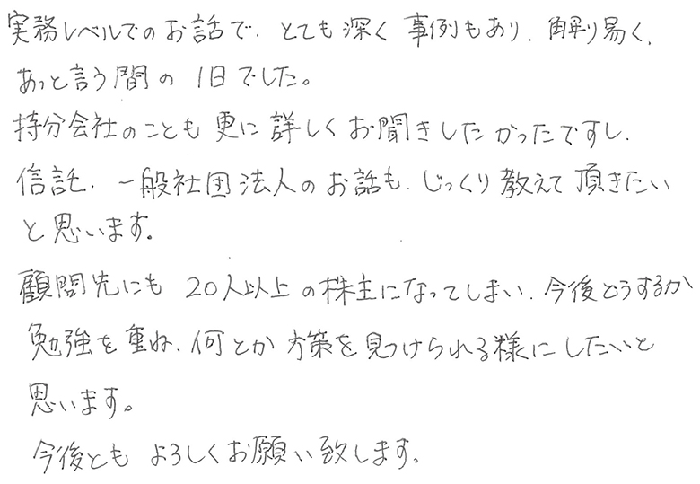 実務レベルでのお話で、とても深く事例もあり、解り易く、
あっと言う間の1日でした。
持分会社のことも更に詳しくお聞きしたかったですし、
信託、一般社団法人のお話も、じっくり教えて頂きたい
と思います。
顧問先にも20人以上の株主になってしまい、今後どうするか
勉強を重ね、何とか方策を見つけられる様にしたいと
思います。
今後ともよろしくお願い致します。